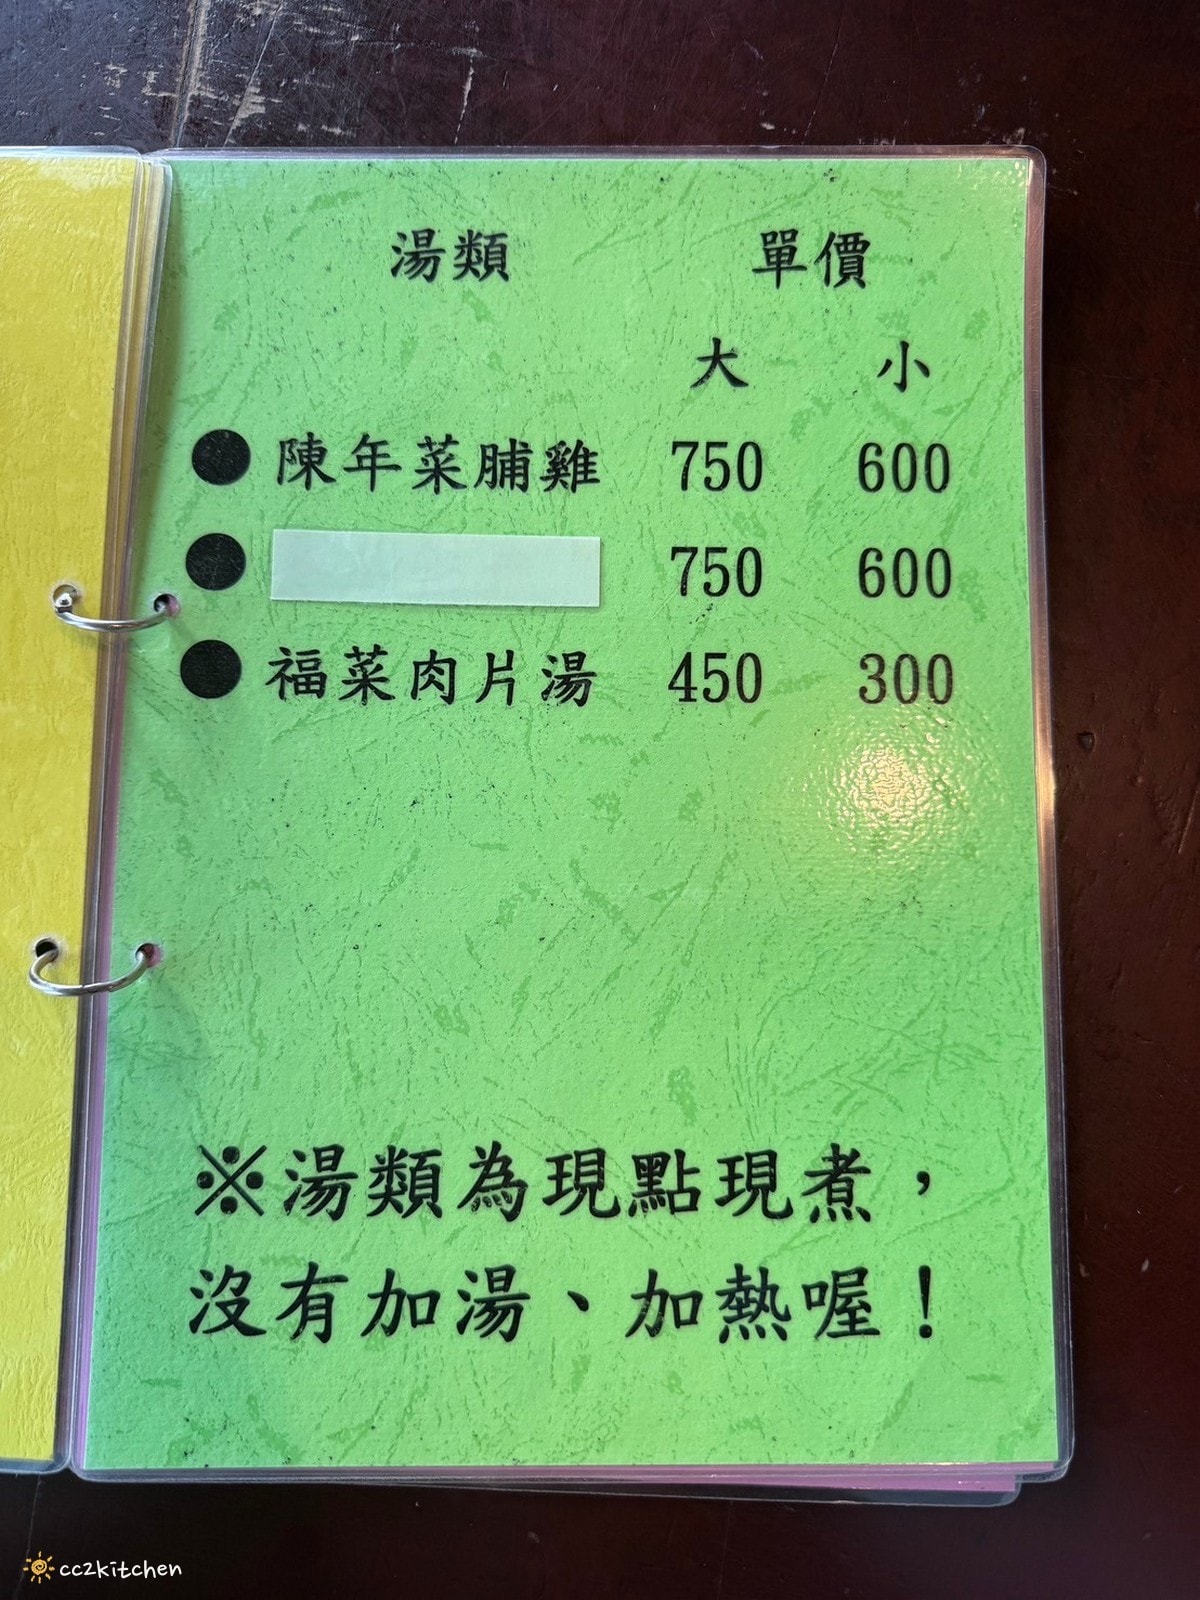 湯類 單價
大 小
●陳年菜脯雞 750 600
● 750 600
●福菜肉片湯 450 300
※湯類為現點現煮，
沒有加湯、加熱喔！
cc2kitchen